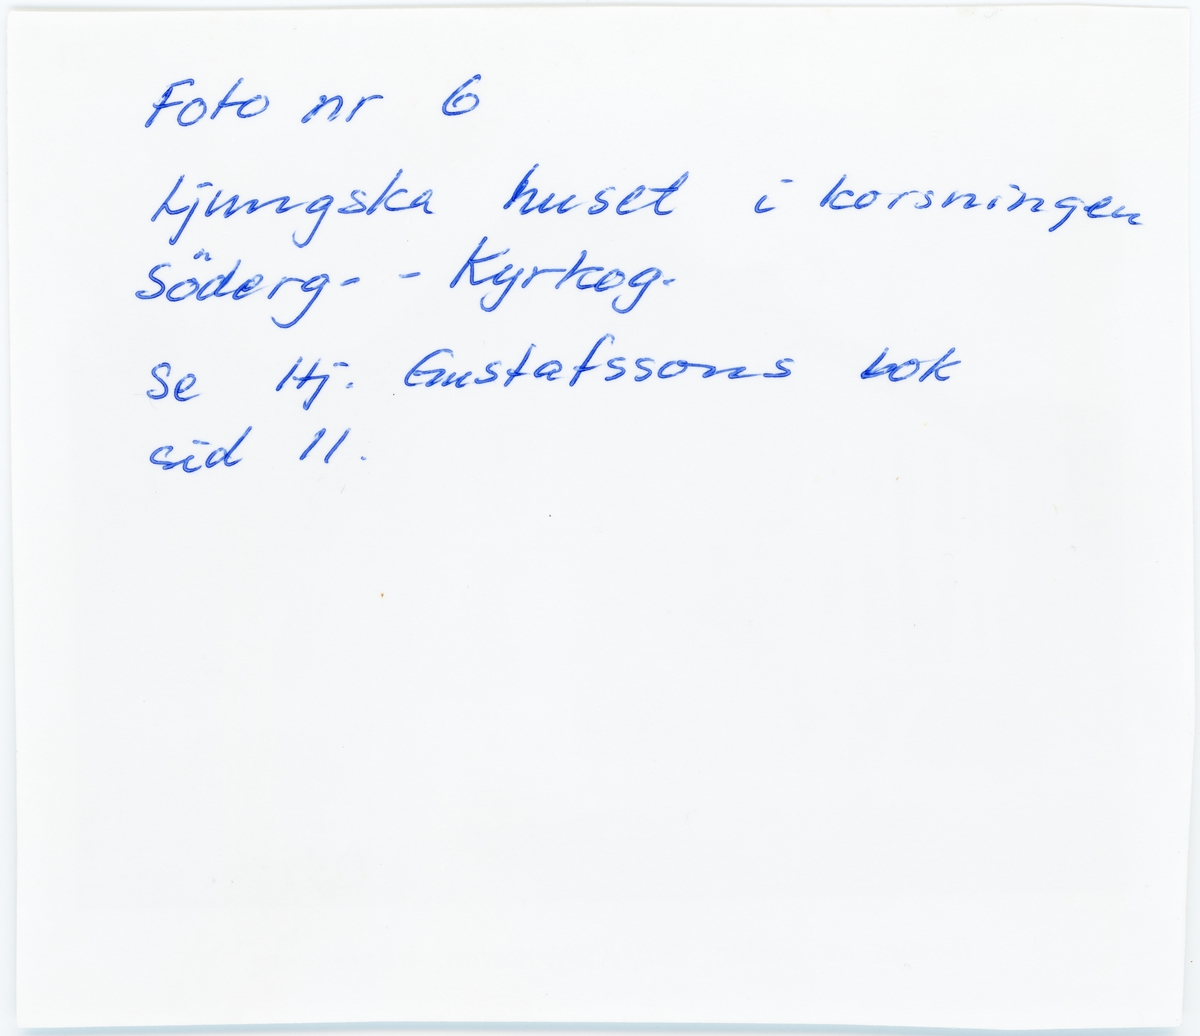 Foto nr 6
Ljungska huset i korsningen
Söderg. - Kyrkog.
se Hj. Gustafssons bok
sid 11.